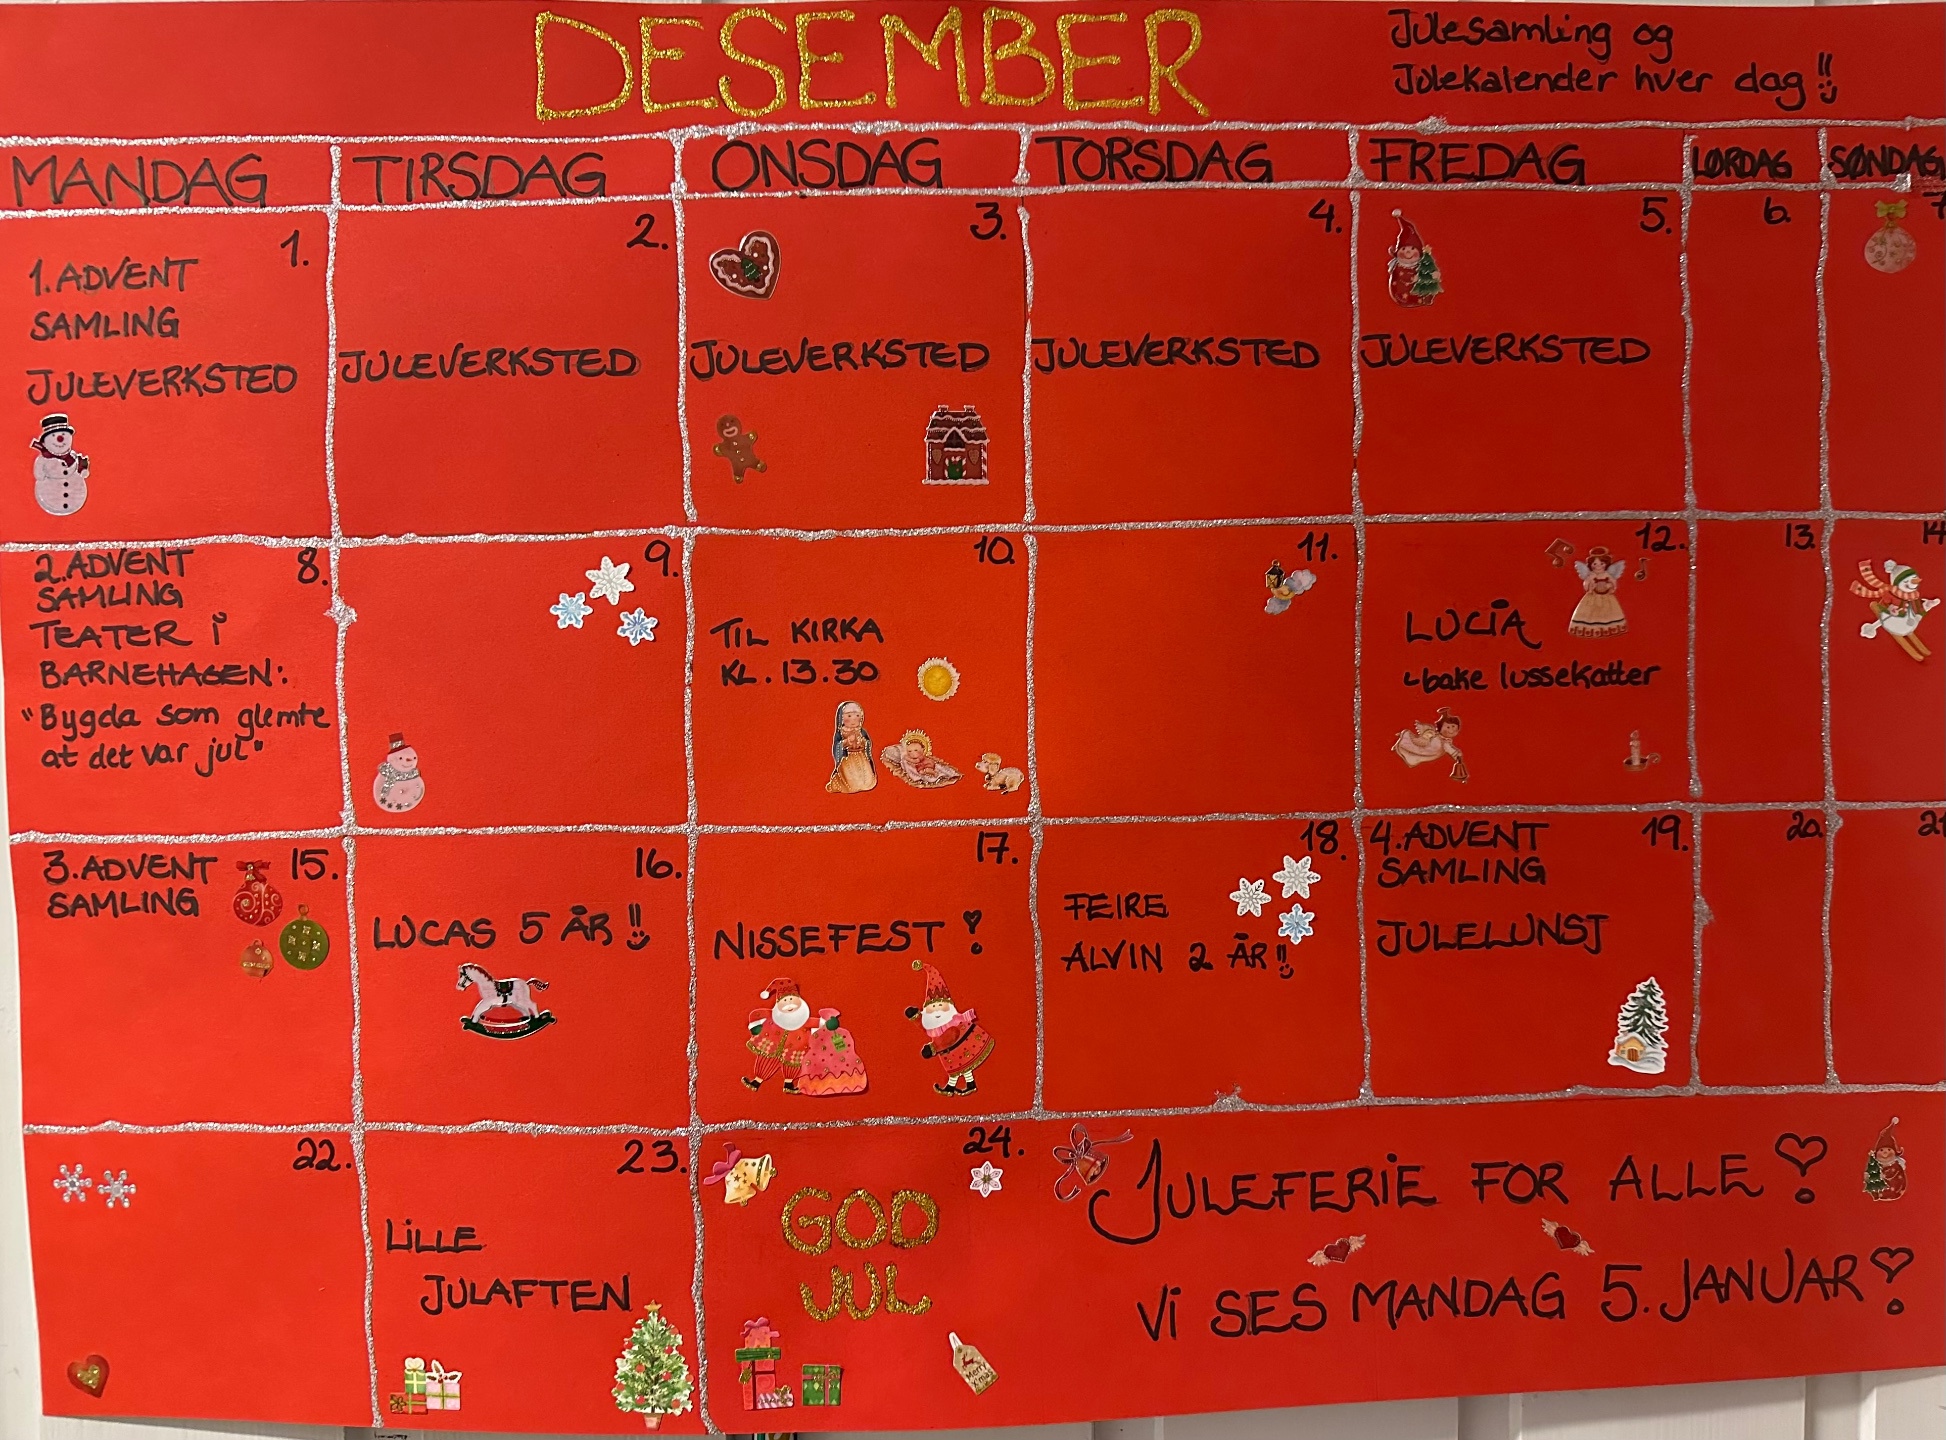 DESEMBER
Julesamling og
Julekalender hver dag!!
MANDAG
TIRSDAG
ONSDAG
TORSDAG
FREDAG
LØRDAG
SØNDAG
1.
1. ADVENT
SAMLING
JULEVERKSTED
2.
JULEVERKSTED
3.
JULEVERKSTED
4.
JULEVERKSTED
5.
JULEVERKSTED
6.
7
8.
2. ADVENT
SAMLING
TEATER i
BARNEHAGEN:
"Bygda som glemte
at det var jul"
9.
10.
TIL KIRKA
KL. 13.30
11.
12.
LUCIA
-bake lussekatter
13.
14
15.
3. ADVENT
SAMLING
16.
LUCAS 5 ÅR!!
17.
NISSEFEST!
18.
FEIRE
ALVIN 2 ÅR!!
19.
4. ADVENT
SAMLING
JULELUNSJ
20.
21
22.
23.
LILLE
JULAFTEN
24.
GOD
JUL
Merry
X'mas
JULEFERIE FOR ALLE!
Vi SES MANDAG 5. JANUAR!